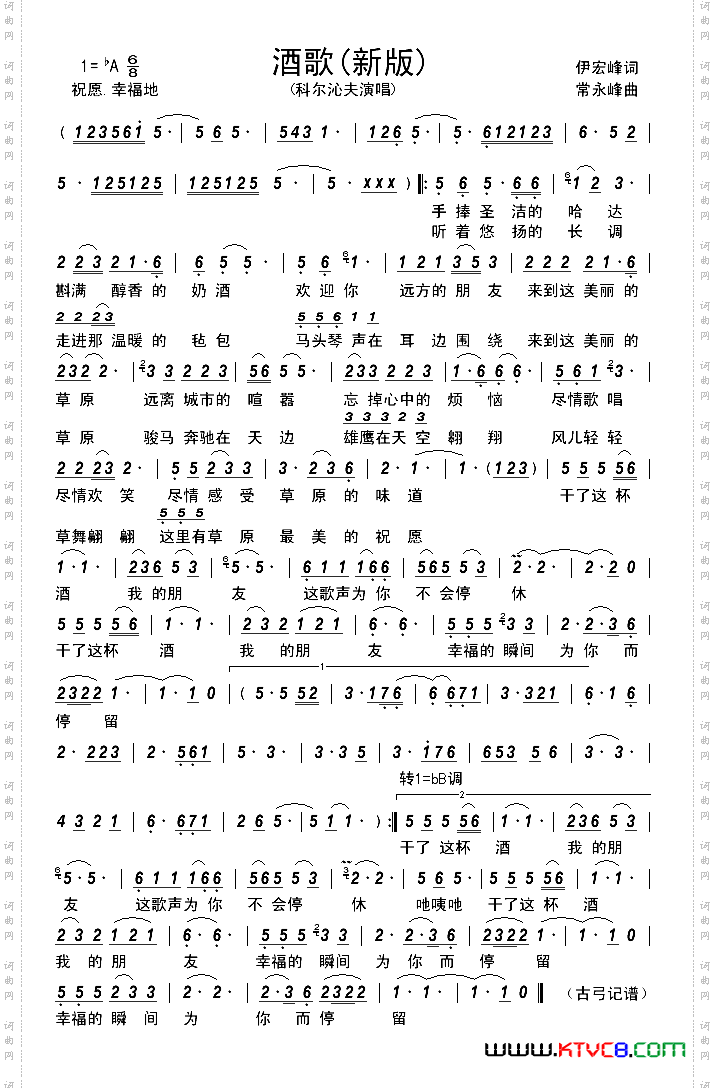 酒歌(新版)
1=♭A 6/8
伊宏峰词
祝愿.幸福地
(科尔沁夫演唱)
常永峰曲
( 123561 5· | 5 6 5 5· | 543 1· | 126 5· | 5· 612123 | 6· 5 2
5· 125125 | 125125 5· | 5· xxx ) |: 5 6 5· 6 6 | 1 2 3·
手 捧 圣 洁的 哈 达
听 着 悠 扬的 长 调
2 23 21·6 | 6 5 5· | 5 6 1· | 121 353 | 222 21·6 |
斟满 醇香 的 奶 酒 欢 迎 你 远方的 朋 友 来到这 美丽 的
2 2 23 5 5 6 1 1
走进那 温暖 的 毡 包 马头琴 声在 耳 边 围 绕 来到这 美丽 的
232 2· | 3 3 223 | 56 5· | 233 223 | 1·6 6 6· | 5 6 1 3 3 2 |
草 原 远离 城市的 喧 嚣 忘 掉心中的 烦 恼 尽情歌 唱
3 3 3 2 3
草 原 骏马 奔驰在 天 边 雄鹰在天 空 翱 翔 风儿轻 轻
2 2 23 2· | 5 5 233 | 3· 236 | 2· 1· | 1·(123) | 5 5 5 56 |
尽情欢 笑 尽情 感 受 草 原 的 味 道 干了这 杯
5 5 5
草舞翩 翩 这里有草 原 最 美的 祝 愿
1·1· | 236 5 3 | 5·5· | 611 166 | 565 5 3 | 2·2· | 2·20 |
酒 我 的 朋 友 这歌声为 你 不 会停 休
5 5 5 56 | 1·1· | 232 121 | 6·6· | 5 5 5 3 3 | 2·23 6 |
干了这杯 酒 我 的朋 友 幸福的 瞬间 为 你 而
1
2322 1· | 1· 10 | ( 5·5 52 | 3·176 | 6 671 | 3·321 | 6·1 6 |
停 留
2·223 | 2·561 | 5·3· | 3·3 5 | 3·176 | 653 5 6 | 3·3· |
转1=bB调
2
4 3 2 1 | 6·671 | 2 6 5 5· | 5 1 1 1· ) :| 5 5 5 56 | 1·1· | 236 5 3 |
干了 这杯 酒 我 的朋
5·5· | 611 166 | 565 5 3 | 2·2· | 5 6 5· | 5 5 5 56 | 1·1· |
友 这歌声为 你 不 会停 休 吔咦吔 干了这 杯 酒
232 121 | 6·6· | 5 5 5 3 3 | 2·23 6 | 2322 1· | 1· 10 |
我 的 朋 友 幸福的 瞬间 为 你 而 停 留
5 5 5 3 3 | 2·2· | 2·23 6 2322 | 1·1· | 1· 10 || （古弓记谱）
幸福的 瞬 间 为 你 而停 留
www.KTVC8.com
词曲网